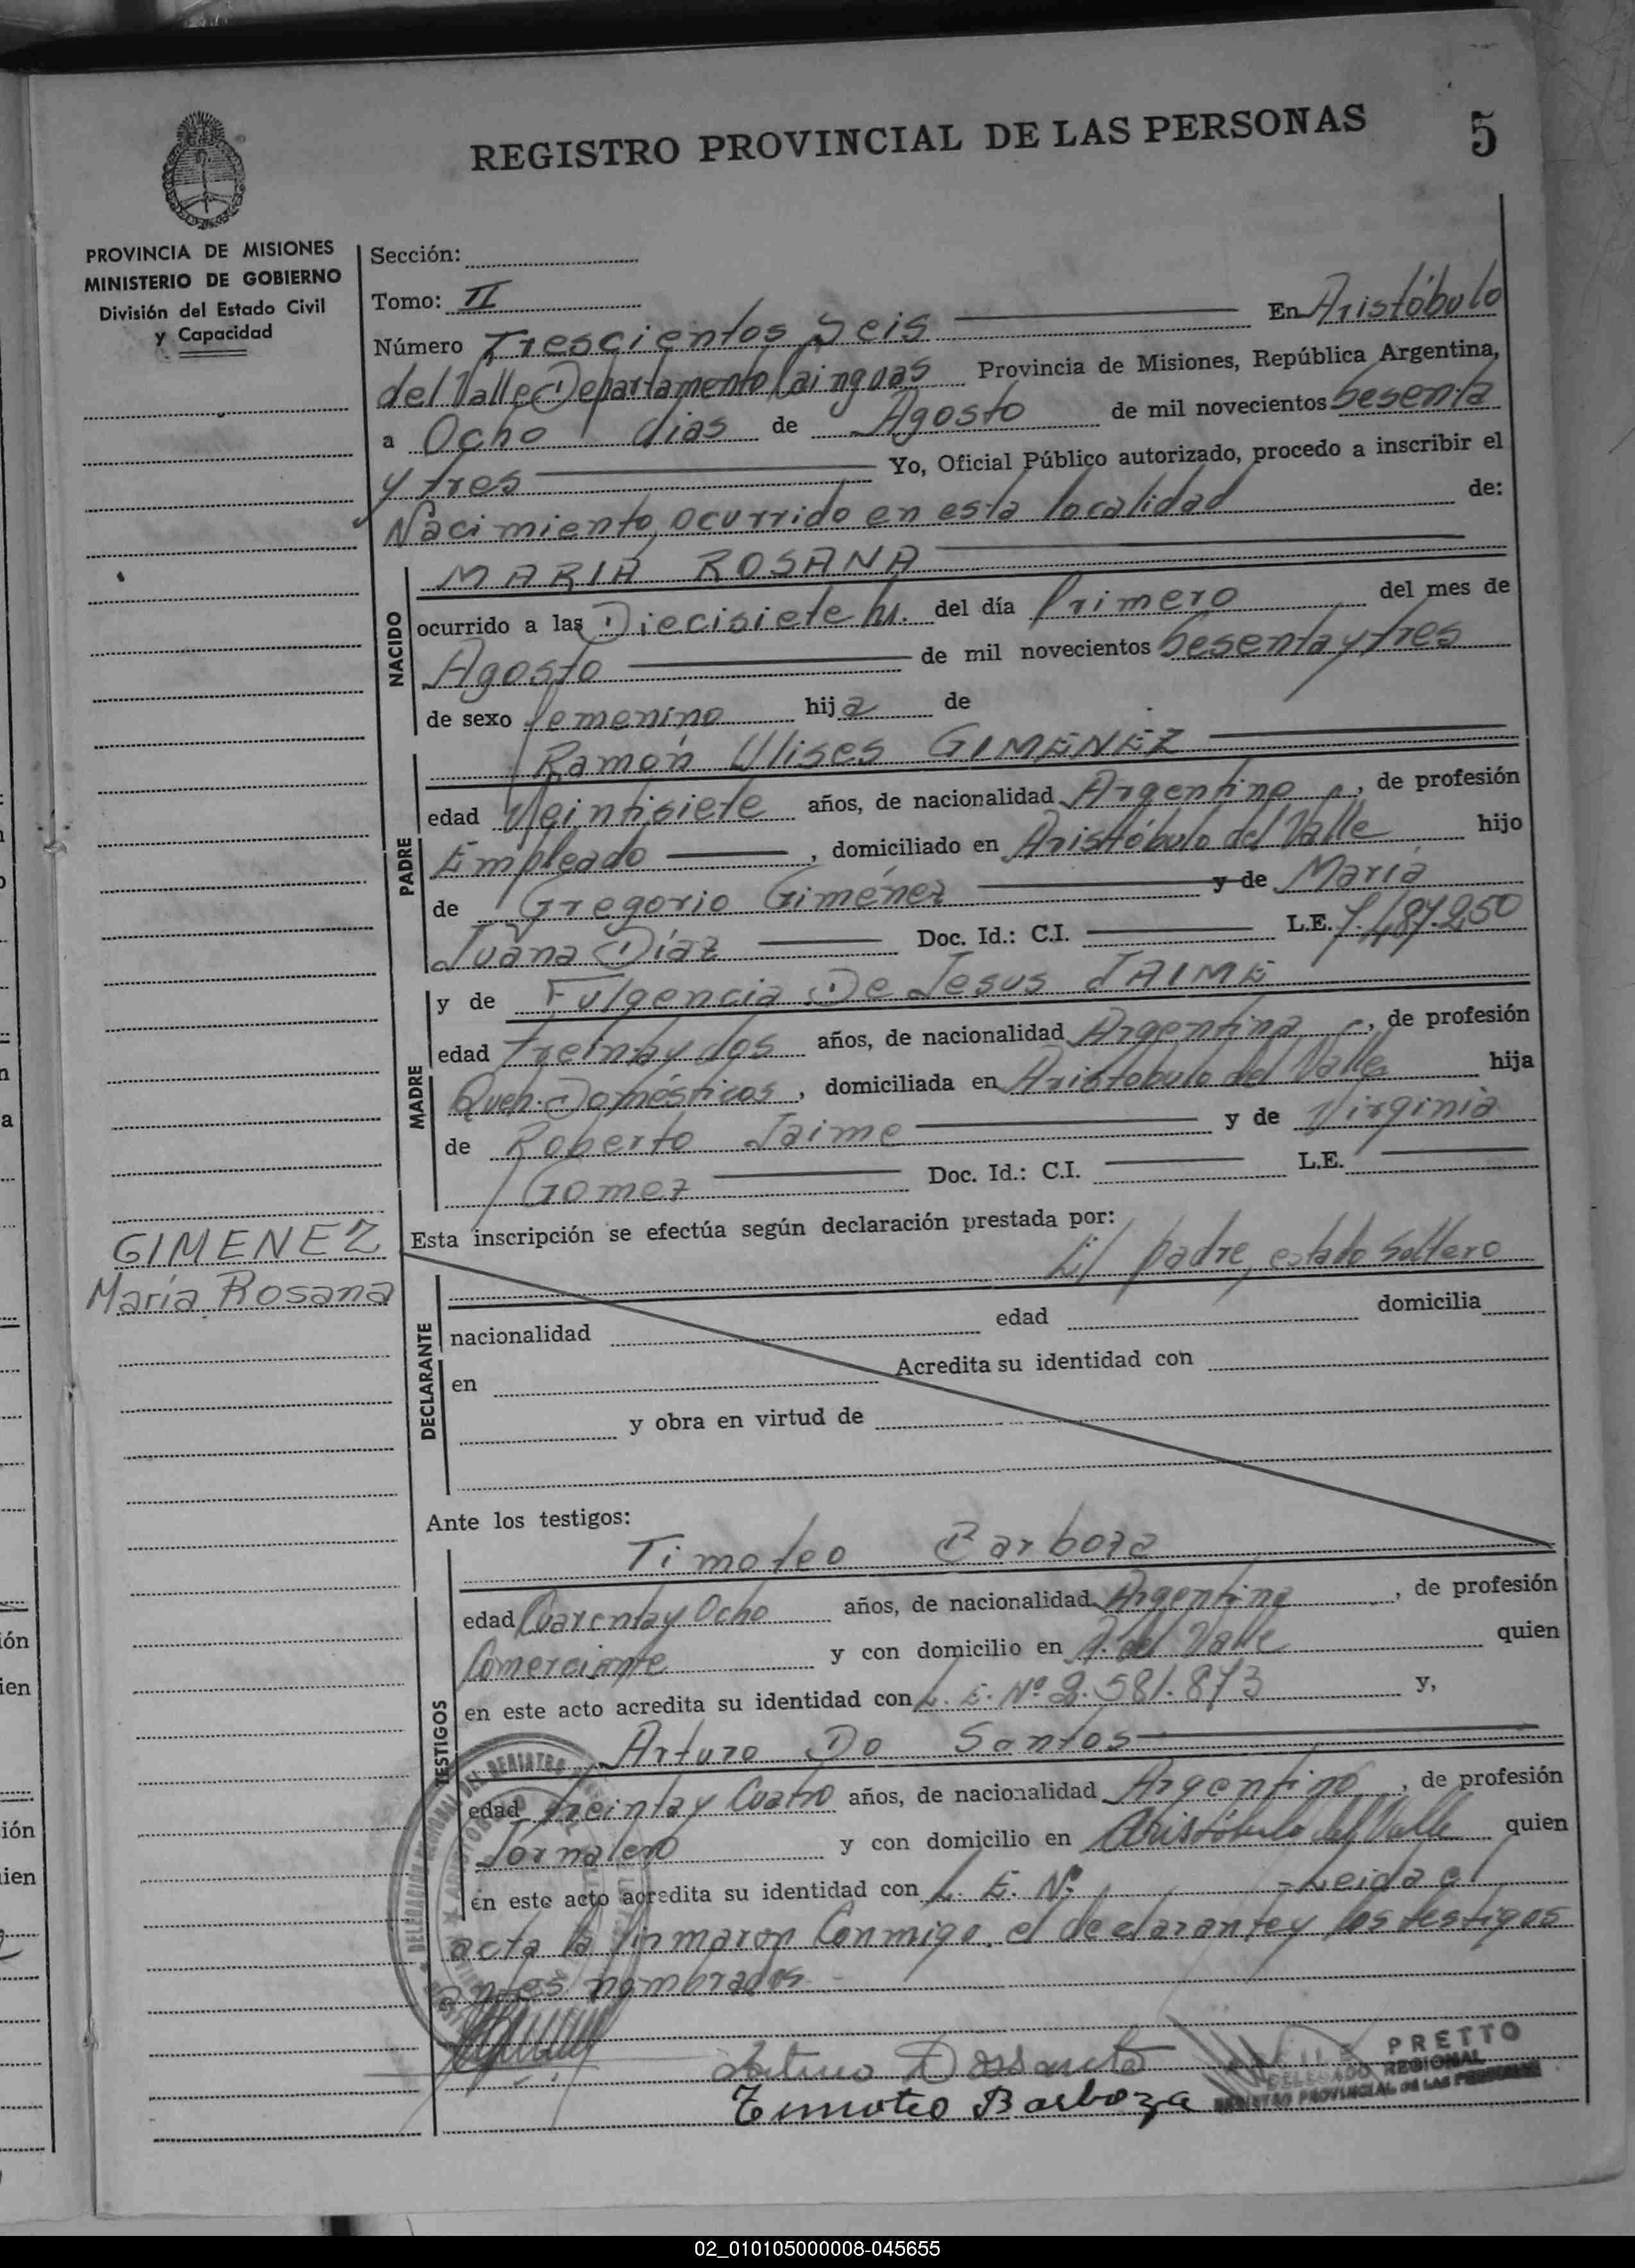 REGISTRO PROVINCIAL DE LAS PERSONAS
5
PROVINCIA DE MISIONES
MINISTERIO DE GOBIERNO
División del Estado Civil
y Capacidad
Sección:
Tomo: II
Número Trescientos Seis En Aristóbulo
del Valle Departamento Cainguas Provincia de Misiones, República Argentina,
a Ocho días de Agosto de mil novecientos Sesenta
y tres Yo, Oficial Público autorizado, procedo a inscribir el
Nacimiento, ocurrido en esta localidad de:
NACIDO
MARIA ROSANA
ocurrido a las Diecisiete hs. del día Primero del mes de
Agosto de mil novecientos Sesenta y tres
de sexo femenino hija de
PADRE
Ramón Ulises GIMENEZ
edad Veintisiete años, de nacionalidad Argentino, de profesión
Empleado, domiciliado en Aristóbulo del Valle hijo
de Gregorio Giménez y de María
Juana Díaz Doc. Id.: C.I. L.E. 7.487.250
MADRE
y de Fulgencia De Jesus JAIME
edad treinta y dos años, de nacionalidad Argentina, de profesión
Queh. Domésticos, domiciliada en Aristobulo del Valle hija
de Roberto Jaime y de Virginia
Gomez Doc. Id.: C.I. L.E.
GIMENEZ
María Rosana
Esta inscripción se efectúa según declaración prestada por:
El padre, estado Soltero
DECLARANTE
nacionalidad edad domicilia
en Acredita su identidad con
y obra en virtud de
Ante los testigos:
TESTIGOS
Timoteo Barboza
edad Cuarenta y Ocho años, de nacionalidad Argentina, de profesión
Comerciante y con domicilio en A. del Valle quien
en este acto acredita su identidad con L. E. Nº 2.581.873 y,
Arturo Do Santos
edad treinta y Cuatro años, de nacionalidad Argentino, de profesión
Jornalero y con domicilio en Aristóbulo del Valle quien
en este acto acredita su identidad con L. E. Nº - Leida el
acta la firmaron Conmigo, el declarante y los testigos
antes nombrados.-
Arturo Dossanto
Timoteo Barboza
PRETTO
DELEGADO REGIONAL
REGISTRO PROVINCIAL DE LAS PERSONAS
02_010105000008-045655